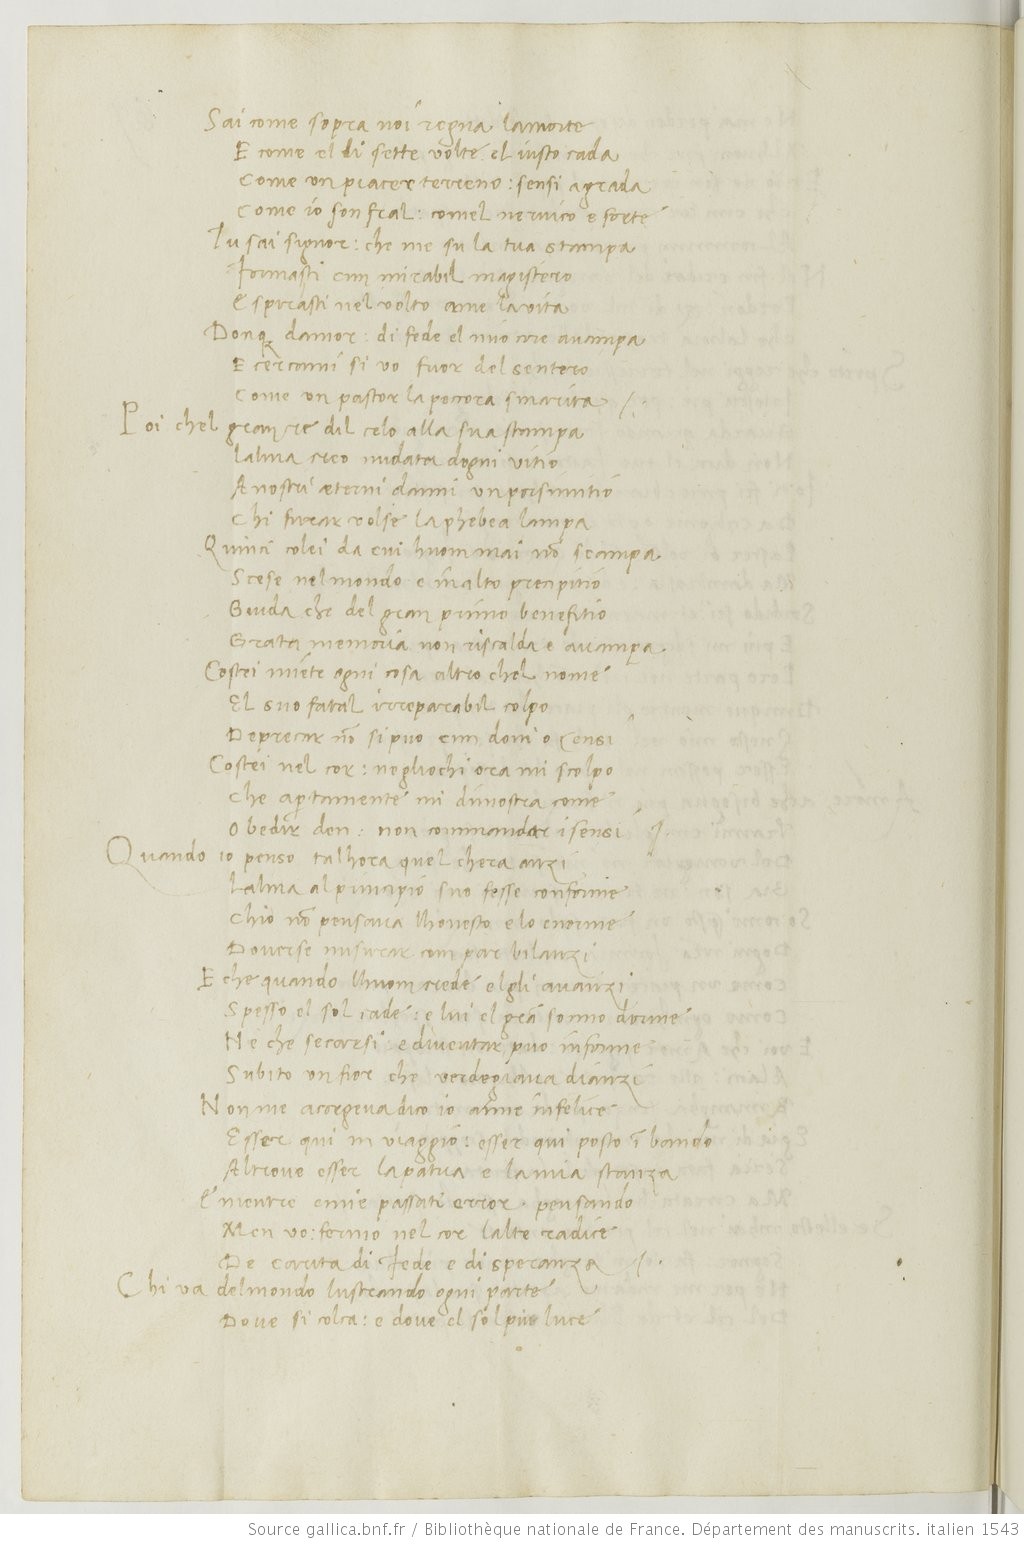 Sai come sopra noi regna lamorte
E come el di sette volte el iusto cada
Come un piacer terreno : sensi agrada
Come io son fral : comel nemico e forte
Tu sai signor : che me su la tua stampa
Formasti cum mirabil magistero
E spirasti nel volto ame lavita
Donq damor : di fede el mio core auampa
E cercami si vo fuor del sentero
Come un pastor la pecora smarita /.
Poi chel gram re dil celo alla sua stampa
Lalma creo nudata dogni vitio
A nostri æterni danni un persuntio
Chi furar volse la phebea lampa
Quinci colei da cui huom mai nõ scampa
Scese nel mondo e in alto precipitio
Guida che del gran primo benefitio
Grata memoria non riscalda e auampa.
Costei miete ogni cosa altro chel nome
El suo fatal irreparabil colpo
Deprecar nõ si puo cum doni o censi
Costei nel cor : negliochi ora mi scolpo
Che apertamente mi dimostra come
Obedir den : non commandar i sensi /.
Quando io penso talhora quel chera anzi
Lalma al principio suo fesse conforme
Chio nõ pensaua lhonesto e lo enorme
Douerse misurar com par bilanzi
E che quando lhuom crede elgli auanzi
Spesso el sol cade : e lui el grã sonno dorme
Ne che secarsi e diuentar puo informe
Subito un fior che verdegiaua dianzi
Non me acorgeua dico io aime infelice
Esser qui in viaggio : esser qui posto ĩ bando
Altroue esser la patria e la mia stanza
E mentre e miei passati error pensando
Men vo : fermo nel cor lalte radice
De carita di fede e di speranza /.
Chi va del mondo lustrando ogni parte
Doue si colca : e doue el sol piu luce
Source gallica.bnf.fr / Bibliothèque nationale de France. Département des manuscrits. italien 1543